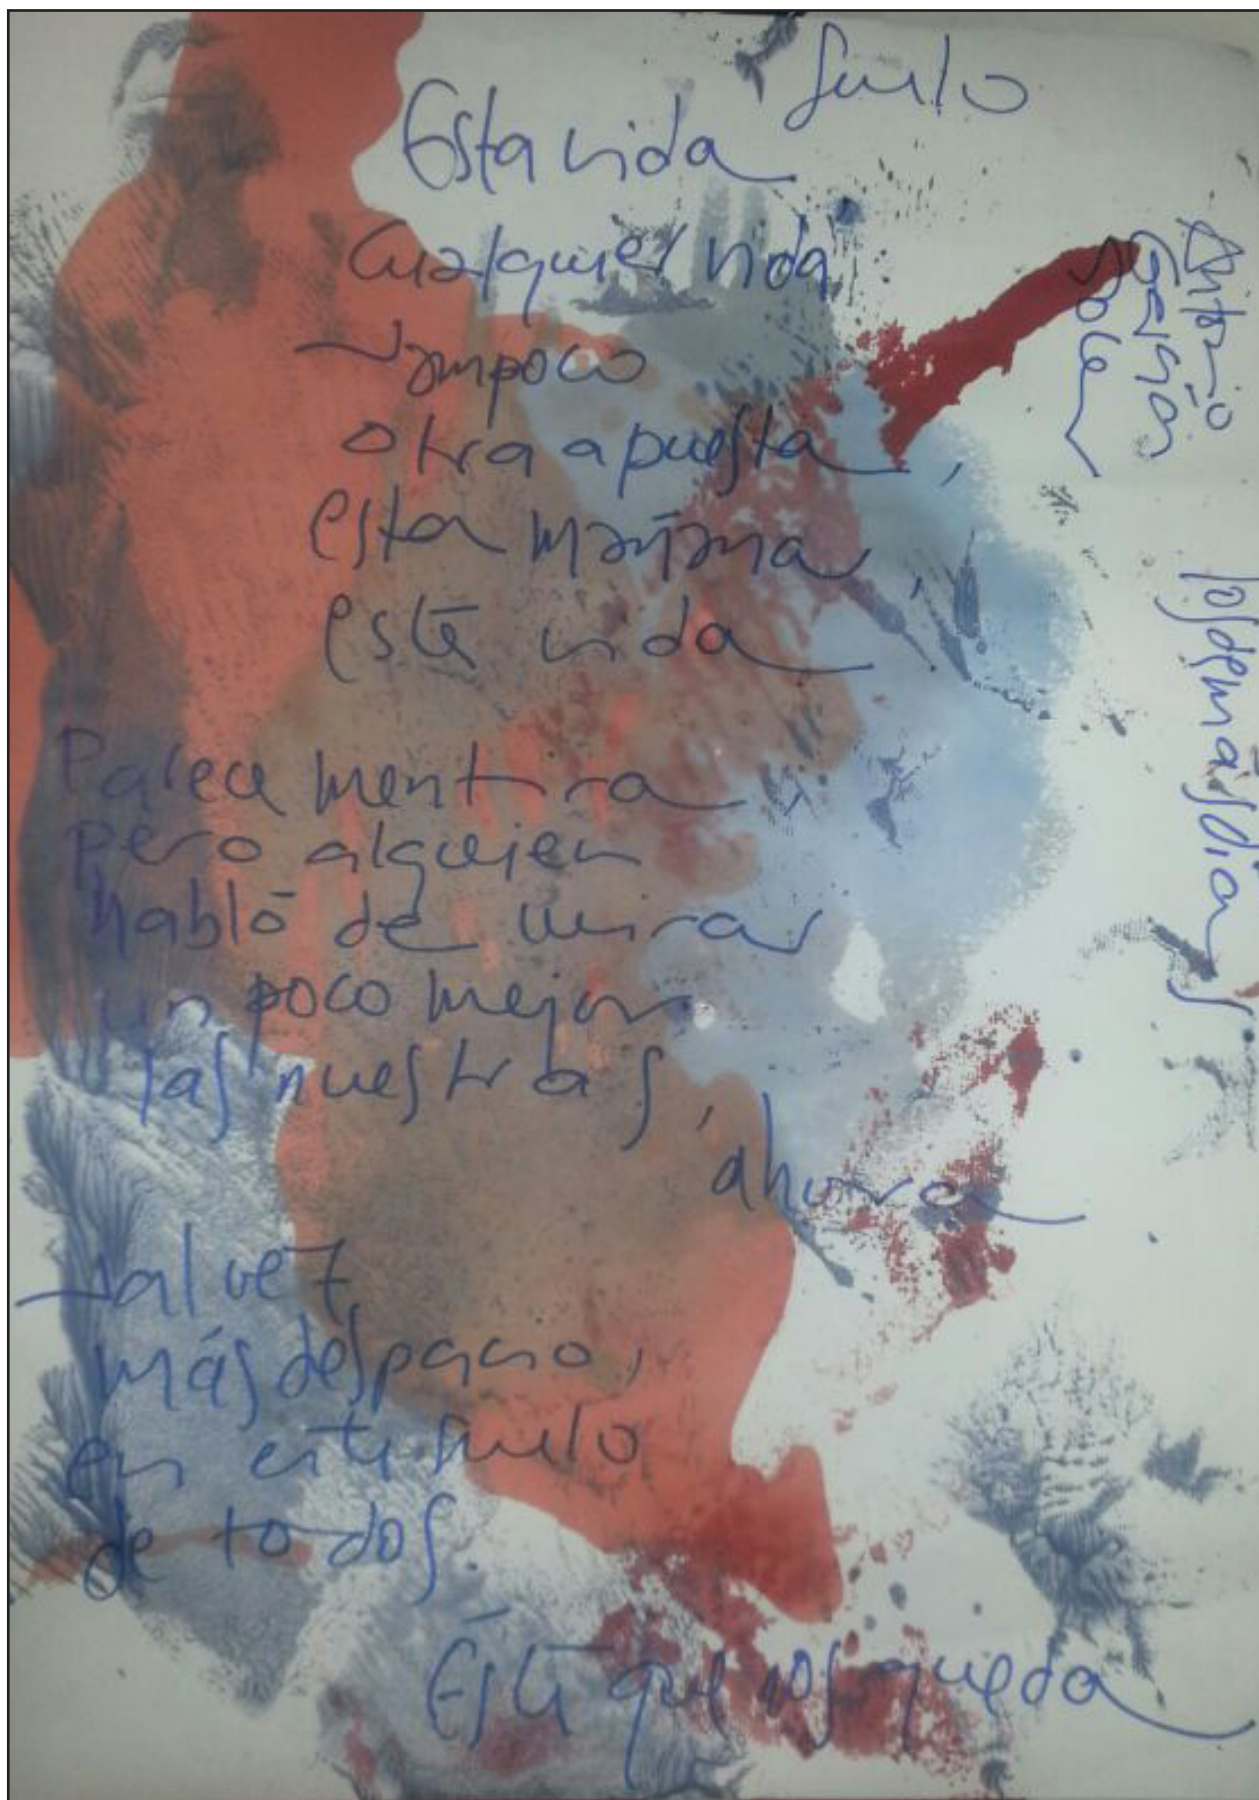 Suelo
Esta vida
Cualquier vida
Tampoco
otra apuesta,
esta mañana,
esta vida
Parece mentira
pero alguien
habló de mirar
un poco mejor
las nuestras,
ahora
Tal vez
más despacio,
en este suelo
de todos.
Éste que nos queda
Antonio
los demás días